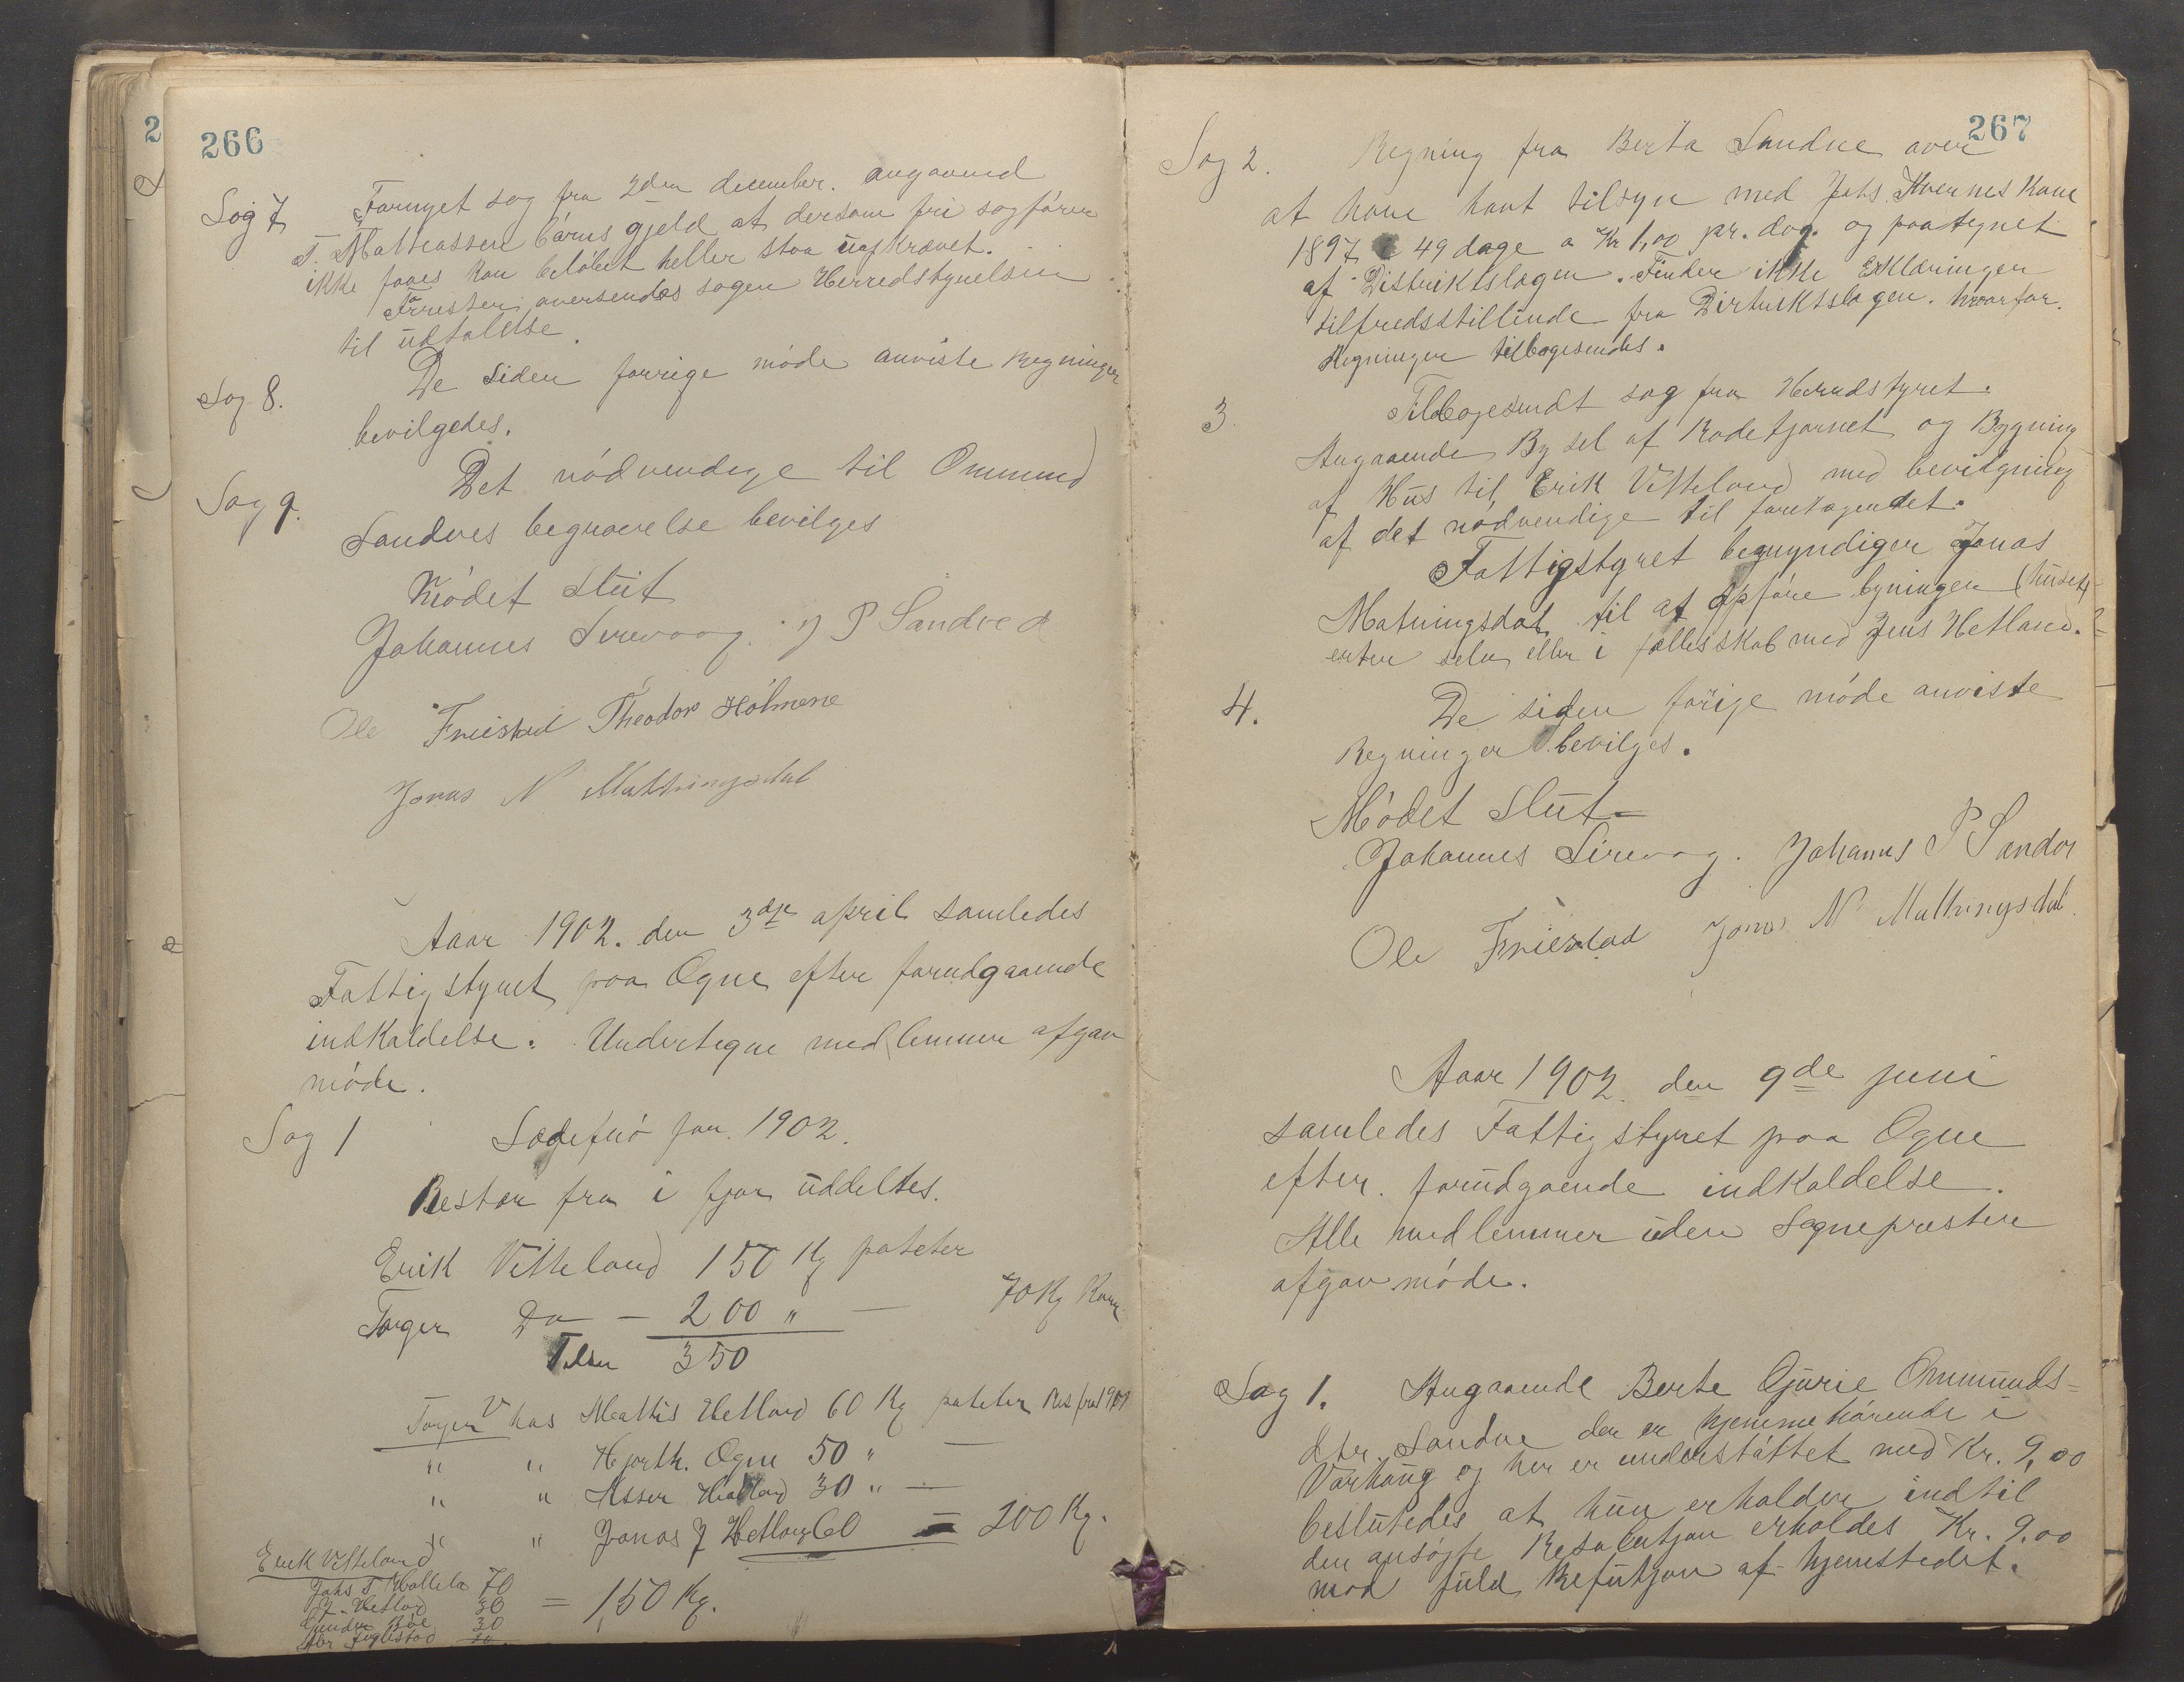 266
Sag 7 Fornyet sag fra 2den december. angaaend
T. Mathiassen børns gjeld at dersom fri sagfører
ikke faaes kan beløbet heller staa uafkrævet.
Førresten oversendes sagen Herredstyrelsen
til udtalelse.
Sag 8. De siden forrige møde anviste Regninger
bevilgedes.
Sag 9. Det nødvendige til Ommund
Sandves begravelse bevilges
Mødet Slut
Johannes Sirevaag. J P Sandved
Ole Friestad Theodor Holmene
Jonas N Matningsdal
Aaar 1902. den 3die april samledes
Fattigstyret paa Ogne efter forudgaaende
indkaldelse. Undertegne medlemmer afgav
møde.
Sag 1 Sædefrø for 1902.
Restar fra i fjor uddeltes.
Erik Vetteland 150 Kg poteter
Torger Do — 200 " — 70 Kg Korn
Tilsm 350
Torger V hos Mattis Hetland 60 Kg poteter Res fra 1901
" " Hjorth. Ogne 50 " —
" " Asser Hetland 30 " —
" " Jonas J Hetland 60 = 200 Kg.
Erik Vetteland
70
J. Hetland 30 = 150 Kg.
30
267
Sag 2. Regning fra Berta Sandve over
at have havt tilsyn med Johs. Kvernes Kone
1897 49 dage a Kr 1,00 pr. dag. og paategnet
af Distriktslægen. Finder ikke Erklæringen
tilfredsstillende fra Dirtuktslagen. hvorfor.
Regningen tilbagesendes.
3. Tilbagesendt sag fra Herredstyret.
Angaaende Bysel af Rodetjernet og Bygning
af Hus til Erik Vetteland med bevilgning
af det nødvendige til foretagendet.
Fattigstyret begmyndiger Jonas
Matningsdal til at opføre bygningen (huset)
enten selv eller i fællesskab med Jens Hetland.
4. De siden forige møde anviste
Regninger bevilges.
Mødet Slut
Johannes Sirevaag. Johannes P Sandve
Ole Friestad Jonas N Matningsdal.
Aaar 1902. den 9de juni
samledes Fattigstyret paa Ogne
efter. forudgaende indkaldelse.
Alle medlemmer uden Sognepresten
afgav møde.
Sag 1. Angaaende Berte Gurie Ommunds=
dtr. Sandve der er hjemmehørende i
Varhaug og her er understøttet med Kr. 9,00
beslutedes at hun erholder indtil
den ansøgte Resolutjon erholdes Kr. 9.00
mod fuld Refutjon af hjemstedet.